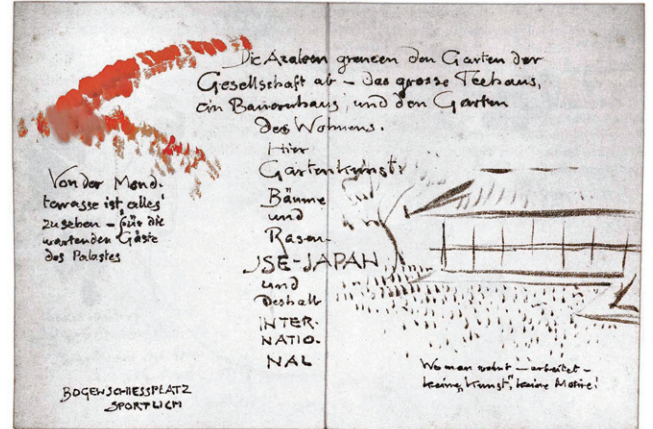 Die Azaleen grenzen den Garten der
Gesellschaft ab – das grosse Teehaus,
ein Bauernhaus, und den Garten
des Wohnens.
Hier
Gartenkunst:
Bäume
und
Rasen.
ISE-JAPAN
und
Deshalb
INTER-
NATIO-
NAL
Von der Mond-
terrasse ist alles
zu sehen – für die
wartenden Gäste
des Palastes
BOGENSCHIESSPLATZ
SPORTLICH
Wo man wohnt – arbeitet –
keine "Kunst", keine Motive!